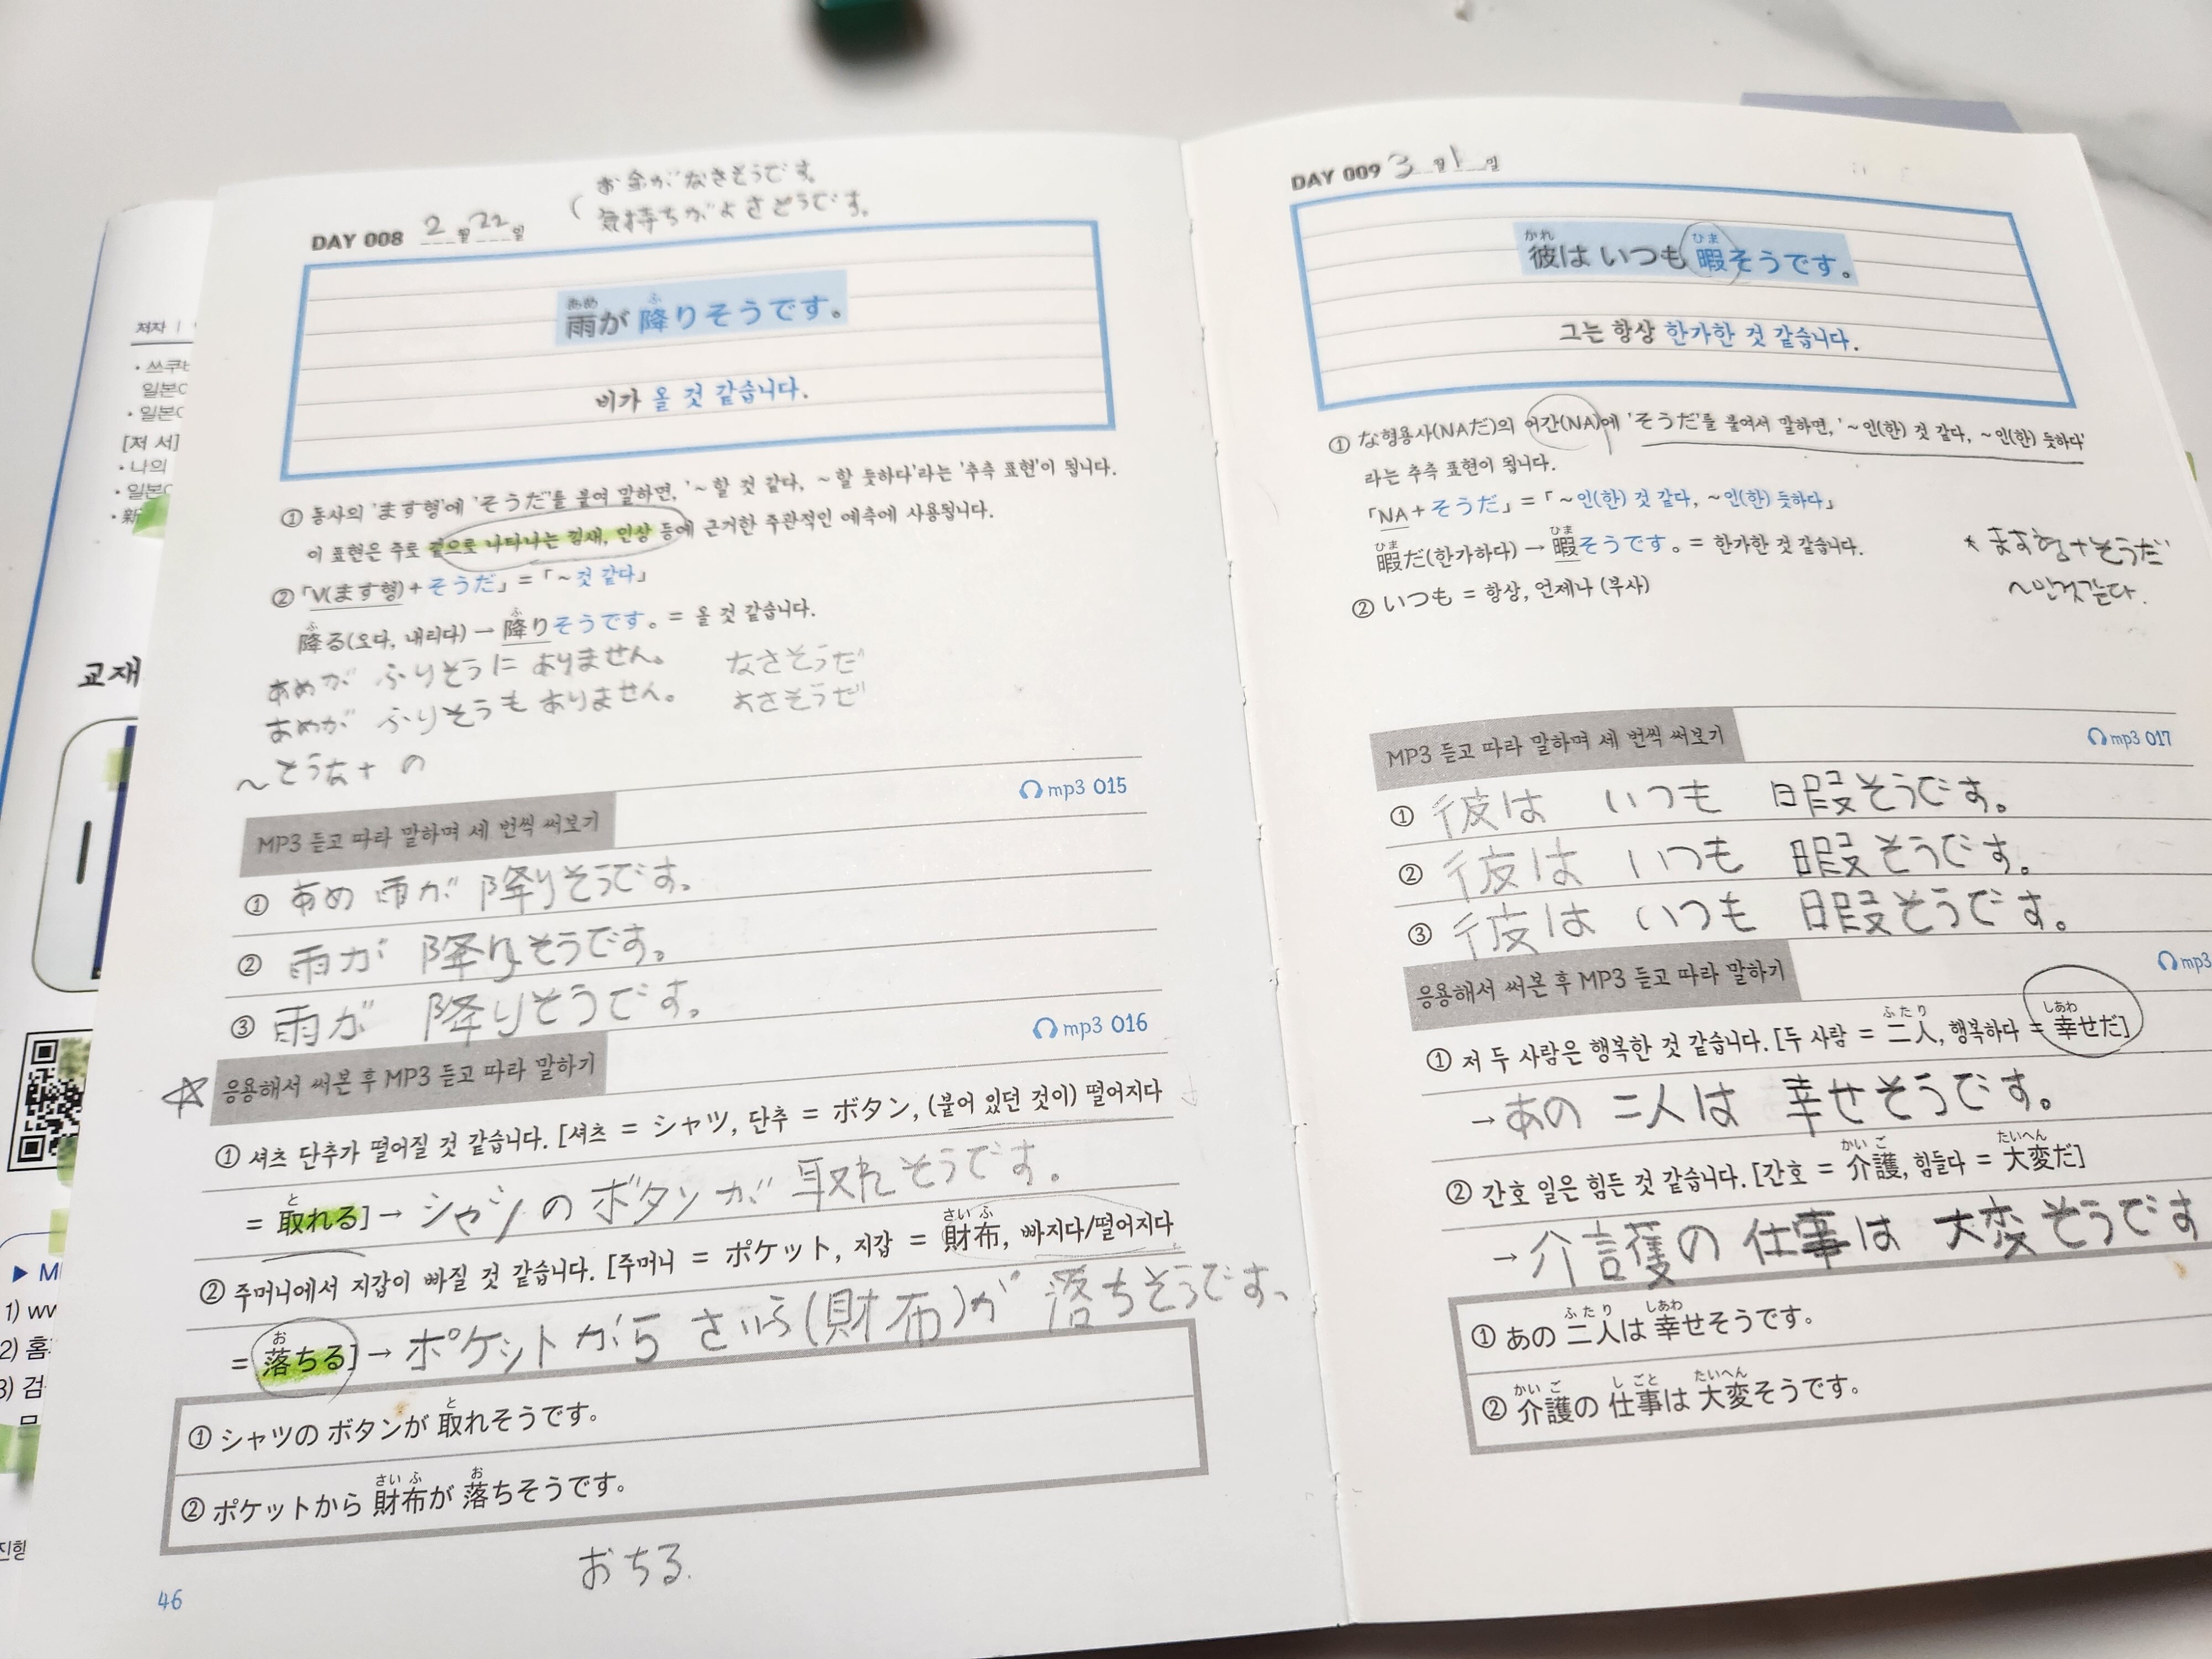 저자 |
• 쓰쿠
일본
• 일본
[저 서]
• 나의
• 일본
• 新
교재
1) ww
2) 홈
3) 검
진행
お金が なさそうです。
気持ちが よさそうです。
DAY 008 2월 22일
あめ ふ
雨が 降りそうです。
비가 올 것 같습니다.
① 동사의 'ます형'에 'そうだ'를 붙여 말하면, '~할 것 같다, ~할 듯하다'라는 '추측 표현'이 됩니다.
이 표현은 주로 겉으로 나타나는 낌새, 인상 등에 근거한 주관적인 예측에 사용됩니다.
② 「V(ます형)+そうだ」=「~것 같다」
ふ ふ
降る(오다, 내리다) → 降りそうです。= 올 것 같습니다.
あめが ふりそうに ありません。 なさそうだ
あめが ふりそうも ありません。 よさそうだ
~そうな + の
mp3 015
MP3 듣고 따라 말하며 세 번씩 써보기
① あめ 雨が 降りそうです。
② 雨が 降りそうです。
③ 雨が 降りそうです。
mp3 016
☆ 응용해서 써본 후 MP3 듣고 따라 말하기
① 셔츠 단추가 떨어질 것 같습니다. [셔츠 = シャツ, 단추 = ボタン, (붙어 있던 것이) 떨어지다
と
= 取れる] → シャツ の ボタン が 取れそうです。
さい ふ
② 주머니에서 지갑이 빠질 것 같습니다. [주머니 = ポケット, 지갑 = 財布, 빠지다/떨어지다
お
= 落ちる] → ポケットから さいふ(財布)が 落ちそうです。
と
① シャツの ボタンが 取れそうです。
さい ふ お
② ポケットから 財布が 落ちそうです。
おちる.
46
DAY 009 3월 1일
かれ ひま
彼は いつも 暇そうです。
그는 항상 한가한 것 같습니다.
① な형용사(NAだ)의 어간(NA)에 'そうだ'를 붙여서 말하면, '~인(한) 것 같다, ~인(한) 듯하다'
라는 추측 표현이 됩니다.
「NA+そうだ」=「~인(한) 것 같다, ~인(한) 듯하다」
ひま ひま
暇だ(한가하다) → 暇そうです。= 한가한 것 같습니다.
② いつも = 항상, 언제나 (부사)
* ます형+そうだ
~인것같다.
MP3 듣고 따라 말하며 세 번씩 써보기
mp3 017
① 彼は いつも 暇そうです。
② 彼は いつも 暇そうです。
③ 彼は いつも 暇そうです。
응용해서 써본 후 MP3 듣고 따라 말하기
mp3
ふたり しあわ
① 저 두 사람은 행복한 것 같습니다. [두 사람 = 二人, 행복하다 = 幸せだ]
→ あの 二人は 幸せそうです。
かい ご たいへん
② 간호 일은 힘든 것 같습니다. [간호 = 介護, 힘들다 = 大変だ]
→ 介護の 仕事は 大変そうです
ふたり しあわ
① あの 二人は 幸せそうです。
かい ご し ごと たいへん
② 介護の 仕事は 大変そうです。